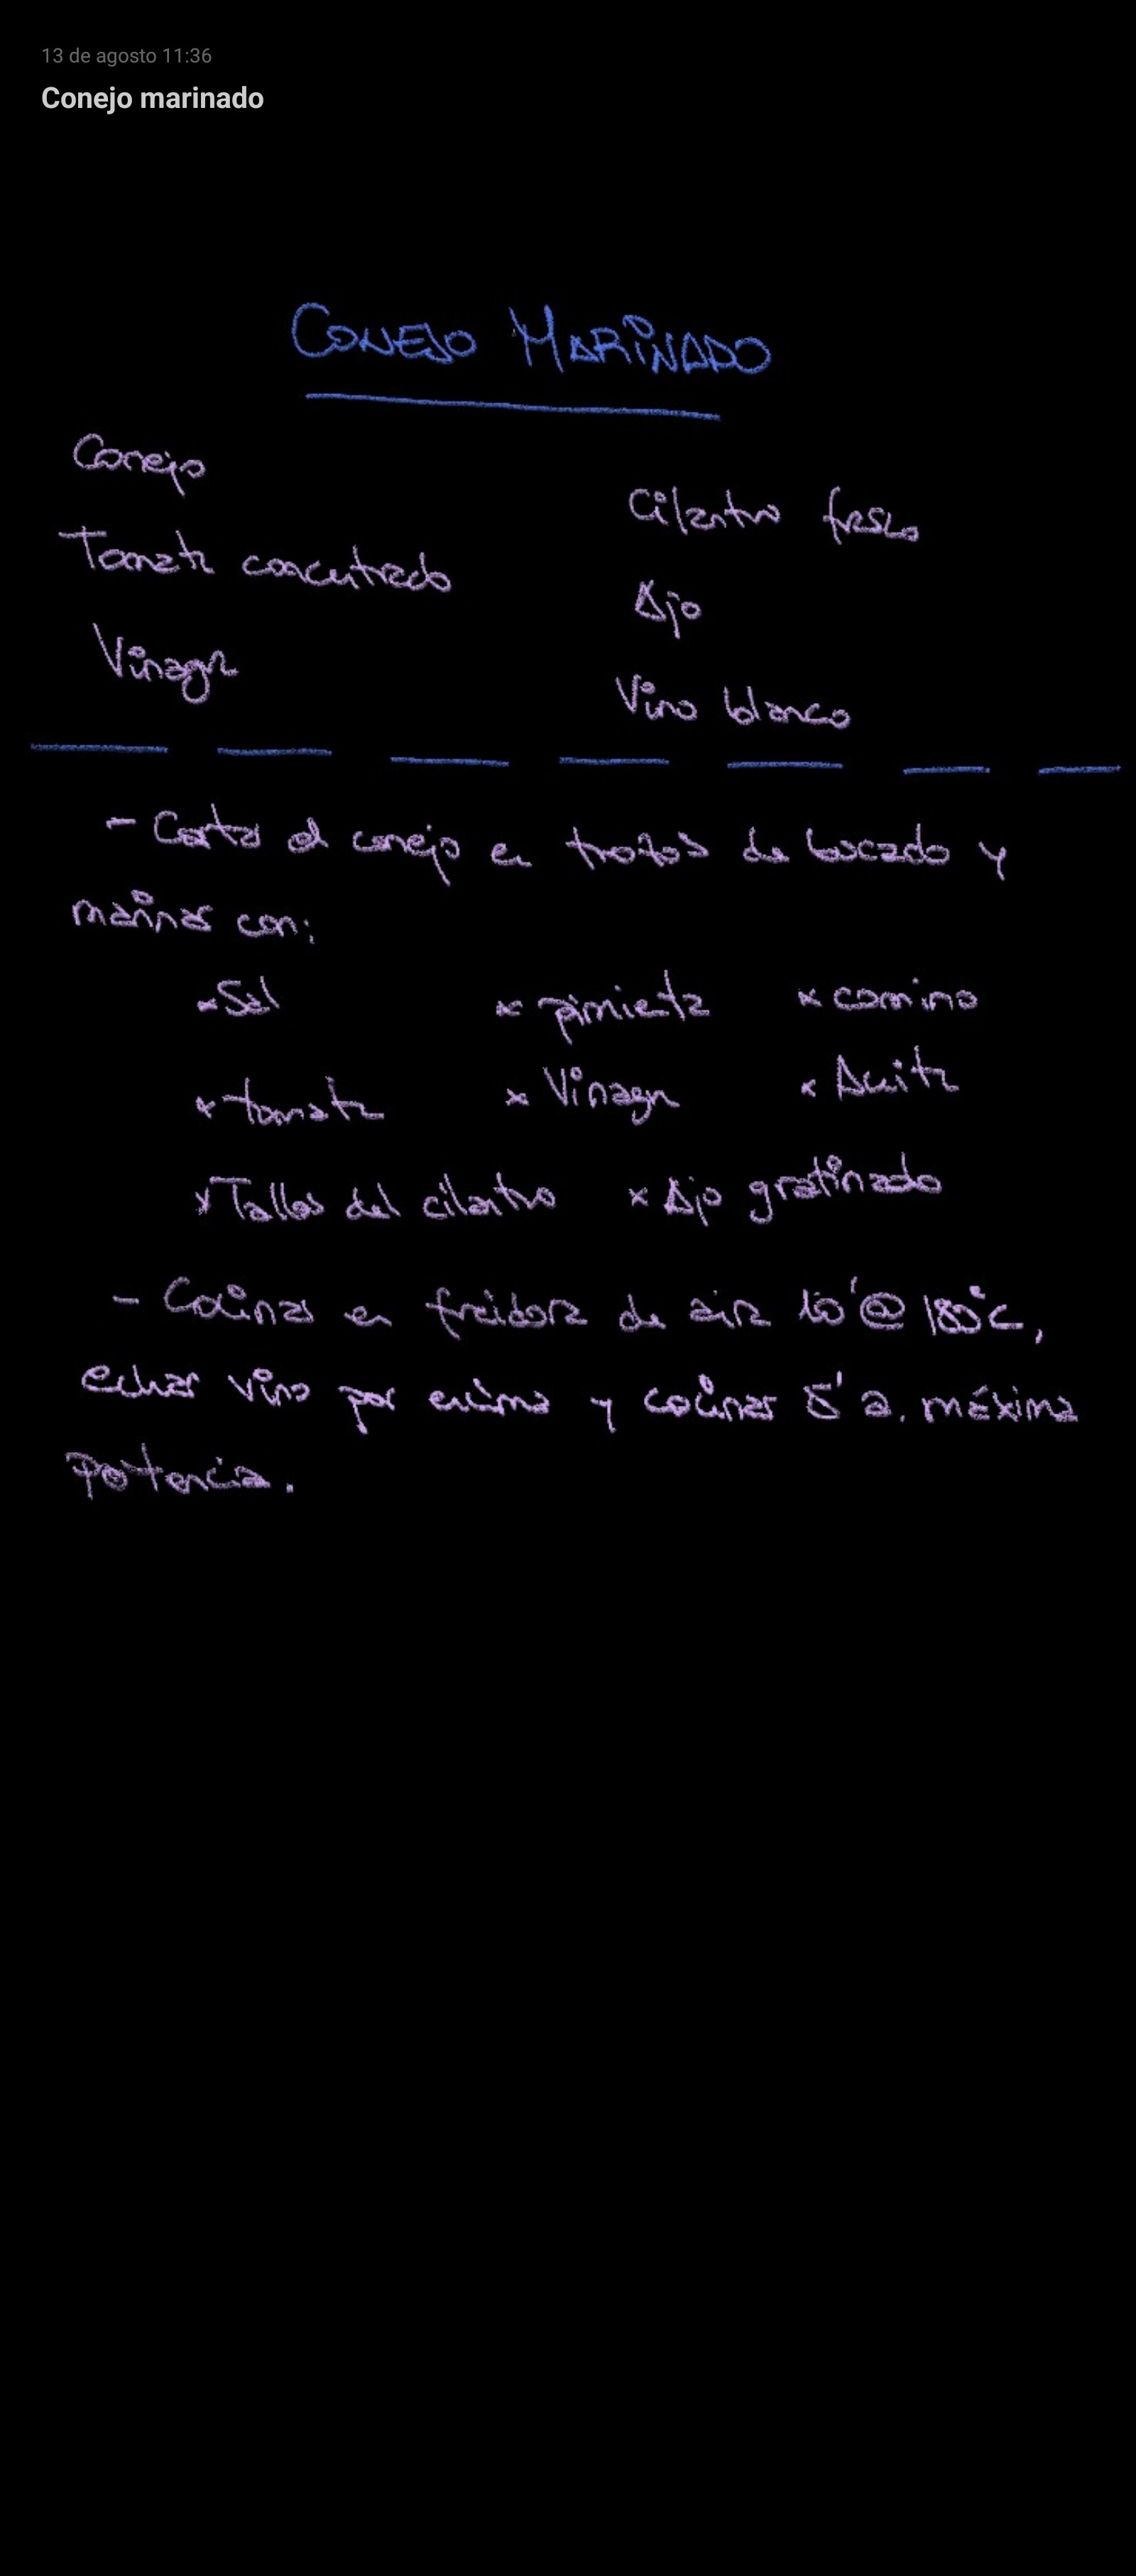 13 de agosto 11:36
Conejo marinado
CONEJO MARINADO
Conejo
Cilantro fresco
Tomate concentrado
Ajo
Vinagre
Vino blanco
- Cortar el conejo en trozos de bocado y
marinar con:
* Sal * pimienta * comino
* tomate * Vinagre * Aceite
* Tallos del cilantro * Ajo gratinado
- Cocinar en freidora de aire 10' @ 180°C,
echar vino por encima y cocinar 5' a máxima
potencia.